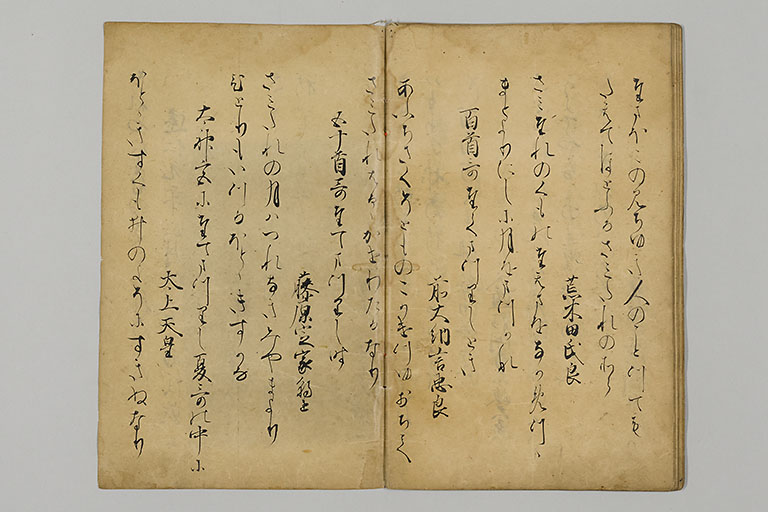 たまほこの見ちゆき人のことつても
たえてほとふるさみたれのそら
荒木田氏良
さみたれのくものたえまをなかめつゝ
まとよりにしに月をまつかな
百首哥たてまつりしとき
前大納言忠良
あふちさくそとものこかけつゆおちて
さみたれはるゝかせわたるなり
五十首哥たてまつりし時
藤原定家朝臣
さみたれの月はつれなきみやまより
ひとりもいつるほとゝきすかな
太神宮にたてまつりし夏哥の中に
太上天皇
ほとゝきすくも井のよそにすきぬなり